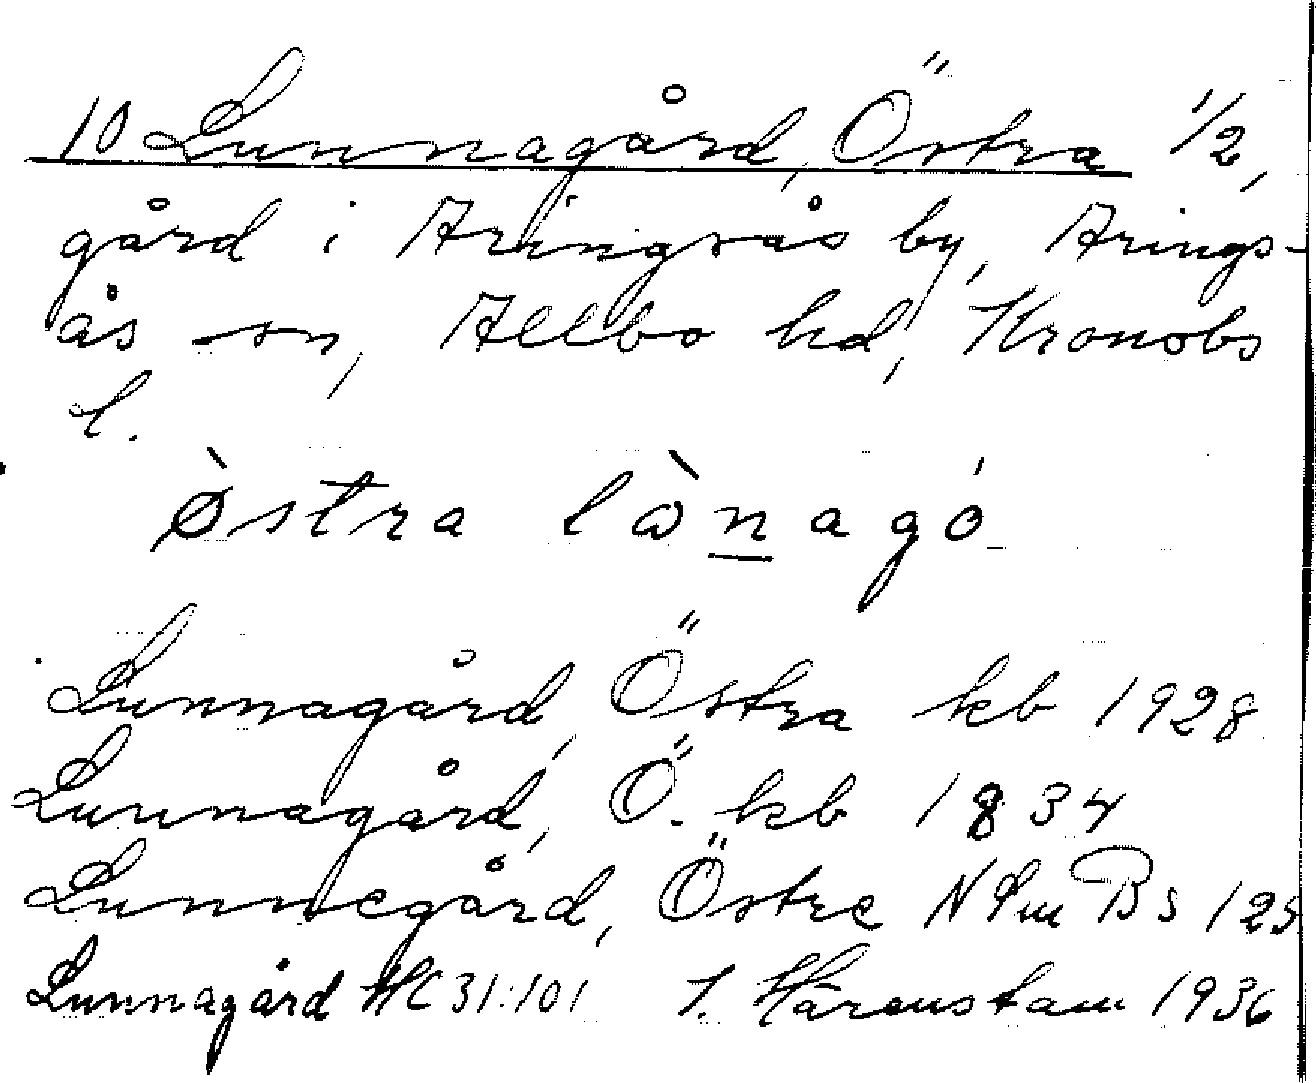 10 Lunnagård, Östra 1/2,
gård i Aringsås by, Arings-
ås sn, Allbo hd, Kronobs
l.
østra lònagó
Lunnagård, Östra kb 1928
Lunnagård, Ö. kb 1834
Lunnegård, Östre NSm Bs 125
Lunnagård HC 31:101 I. Härenstam 1936